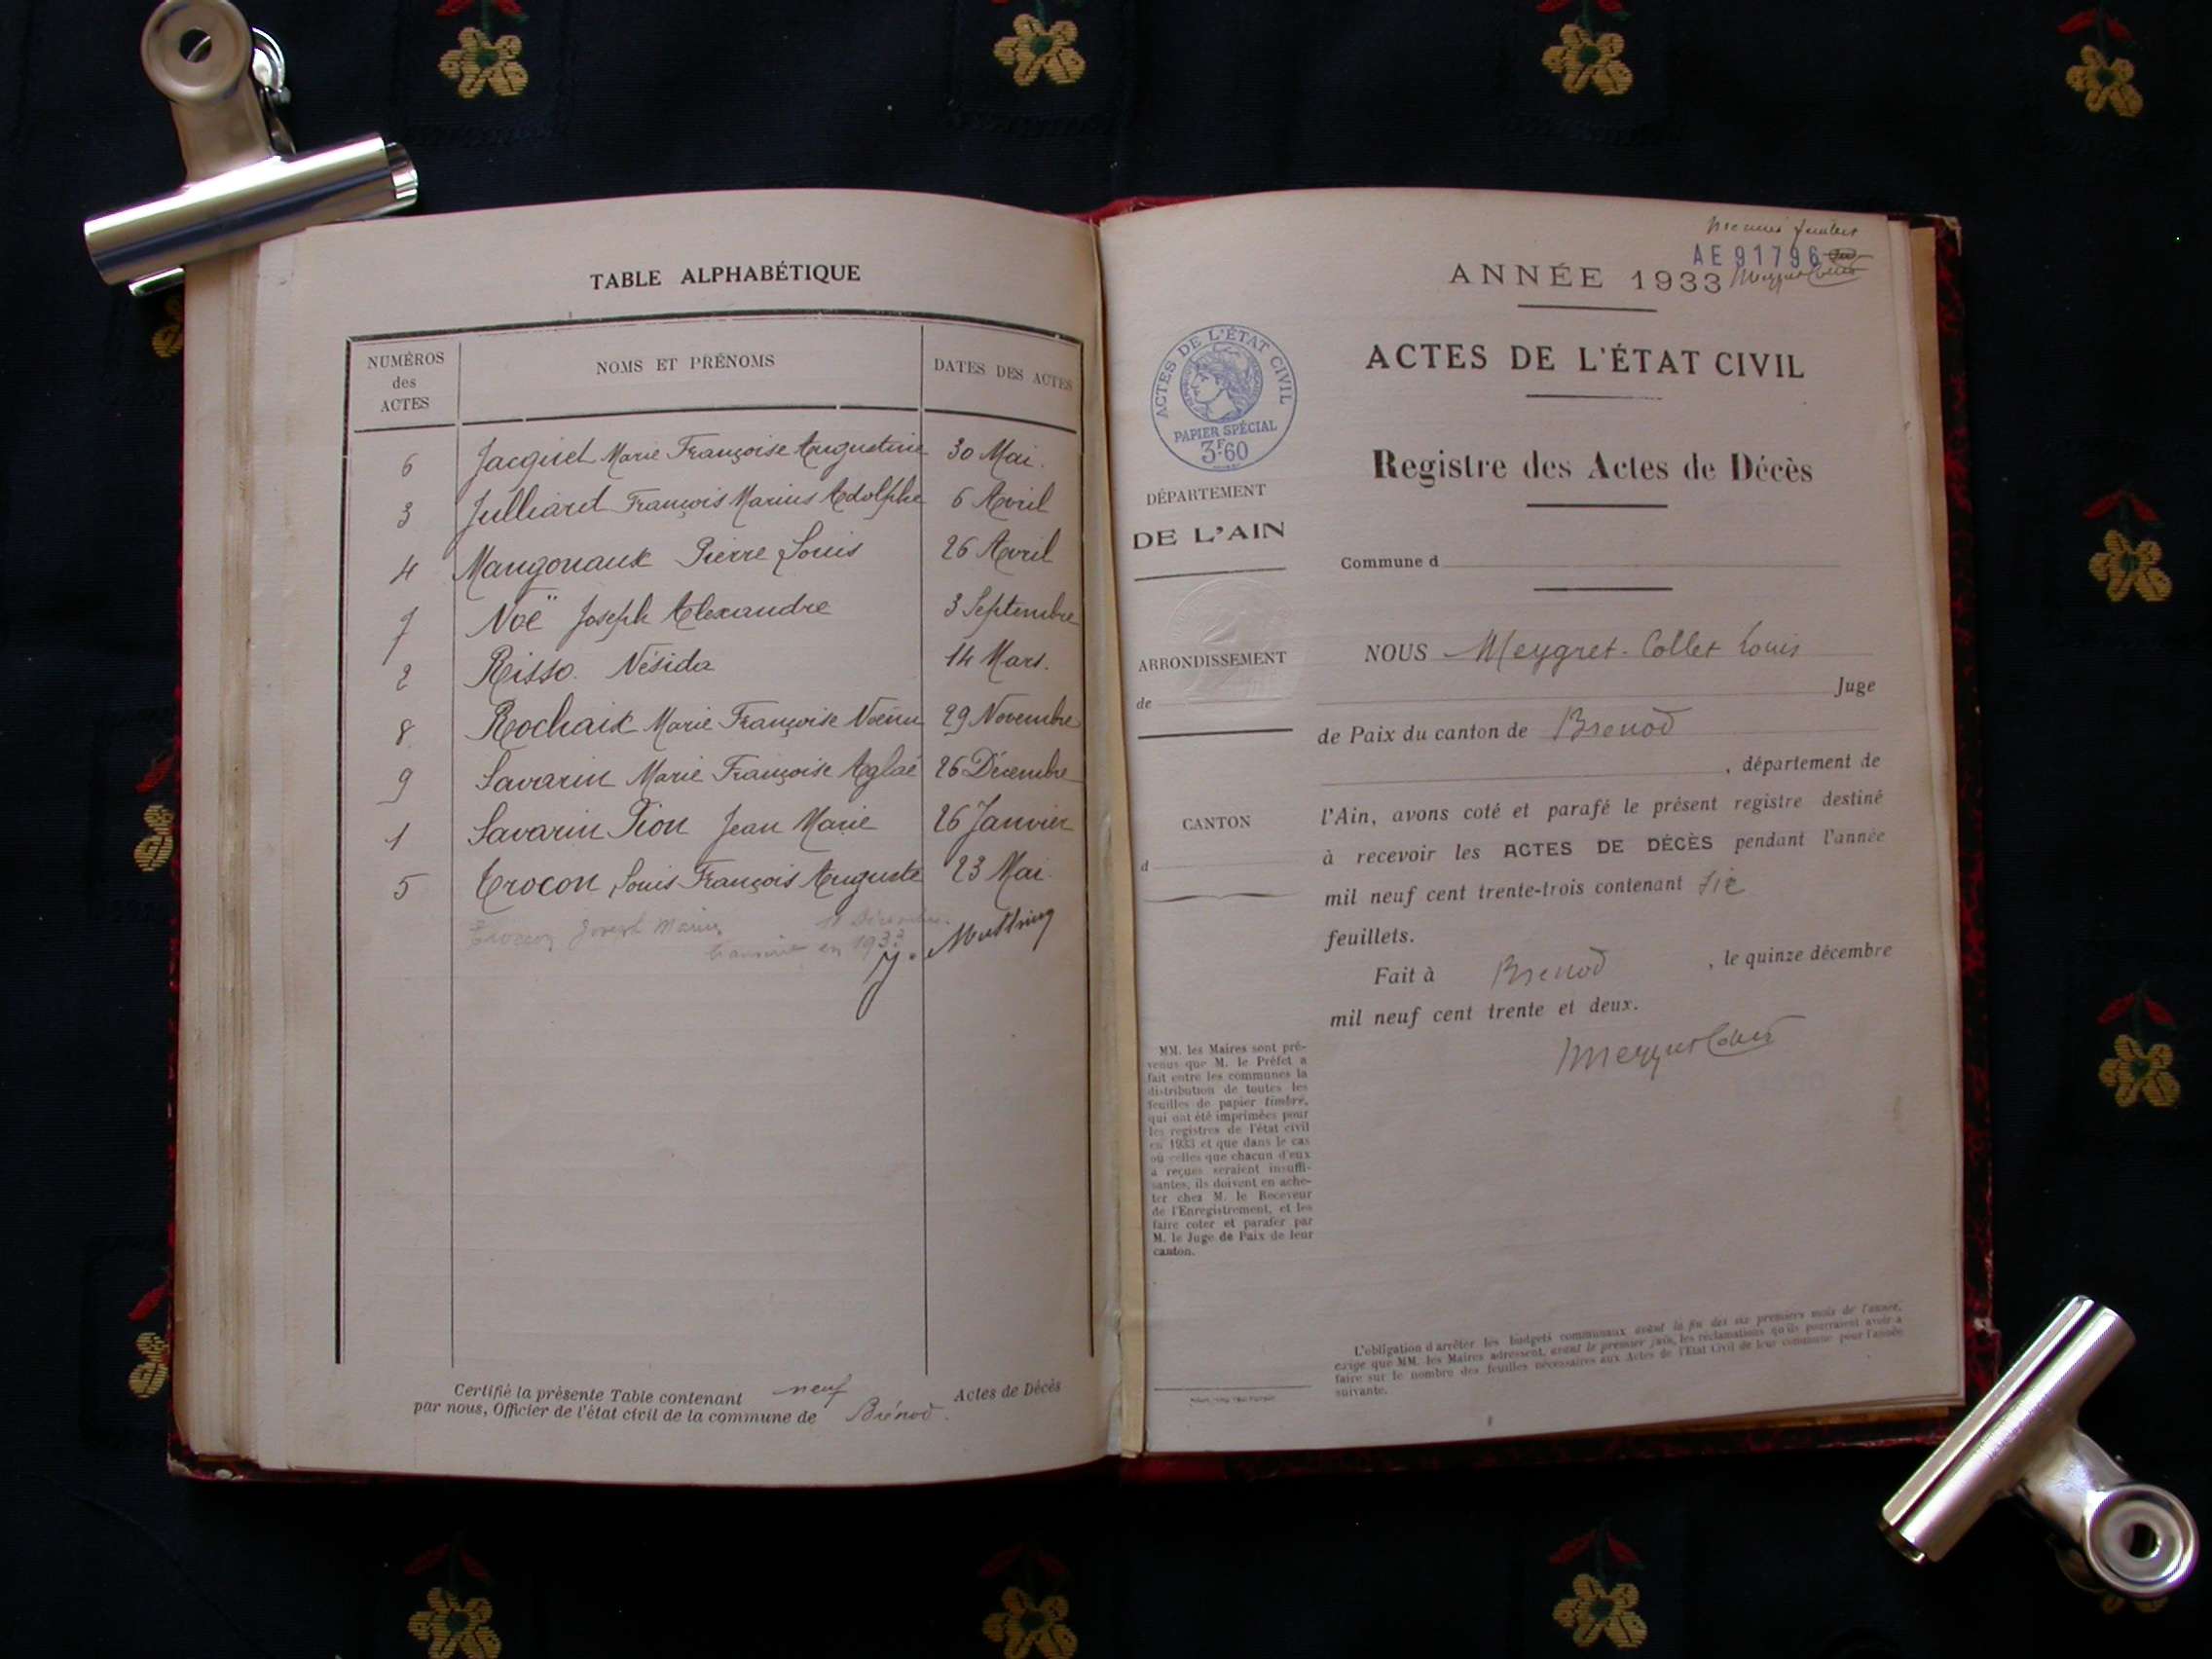 TABLE ALPHABÉTIQUE
NUMÉROS des ACTES NOMS ET PRÉNOMS DATES DES ACTES
6 Jacquet Marie Françoise Augustine 30 Mai.
3 Julliard François Marius Adolphe 6 Avril
4 Mangonaux Pierre Louis 26 Avril
7 Noë Joseph Alexandre 3 Septembre
2 Risso Nésida 14 Mars.
8 Rochaix Marie Françoise 29 Novembre
9 Savarin Marie Françoise Aglaé 26 Décembre
1 Savarin Pion Jean Marie 26 Janvier
5 Trocon Louis François Auguste 23 Mai
Trocon Joseph Marius 11 Décembre
en 1933
Certifié la présente Table contenant neuf Actes de Décès
par nous, Officier de l'état civil de la commune de Brénod.
AE 91796
ANNÉE 1933
ACTES DE L'ÉTAT CIVIL
Registre des Actes de Décès
Commune d
ACTES DE L'ÉTAT CIVIL
PAPIER SPÉCIAL
3F.60
DÉPARTEMENT
DE L'AIN
ARRONDISSEMENT
de
CANTON
d
NOUS Meygret-Collet Louis
Juge
de Paix du canton de Brenod
, département de
l'Ain, avons coté et parafé le présent registre destiné
à recevoir les ACTES DE DÉCÈS pendant l'année
mil neuf cent trente-trois contenant six
feuillets.
Fait à Brenod , le quinze décembre
mil neuf cent trente et deux.
Meygret Collet
MM. les Maires sont pré-
venus que M. le Préfet a
fait entre les communes la
distribution de toutes les
feuilles de papier timbré,
qui ont été imprimées pour
les registres de l'état civil
en 1933 et que dans le cas
où celles que chacun d'eux
a reçues seraient insuffi-
santes, ils doivent en ache-
ter chez M. le Receveur
de l'Enregistrement, et les
faire coter et parafer par
M. le Juge de Paix de leur
canton.
L'obligation d'arrêter les budgets communaux avant la fin des six premiers mois de l'année,
exige que MM. les Maires adressent, avant le premier juin, les réclamations qu'ils pourraient avoir à
faire sur le nombre des feuilles nécessaires aux Actes de l'Etat Civil de leur commune pour l'année
suivante.